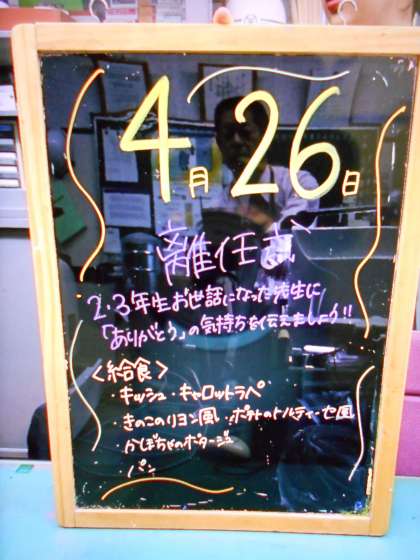 4月26日
離任式
2・3年生お世話になった先生に
「ありがとう」の気持ちを伝えましょう!!
<給食>
・キッシュ・キャロットラペ
・きのこのリヨン風・ポテトのトルティーセ風
・かぼちゃのポタージュ
・パン